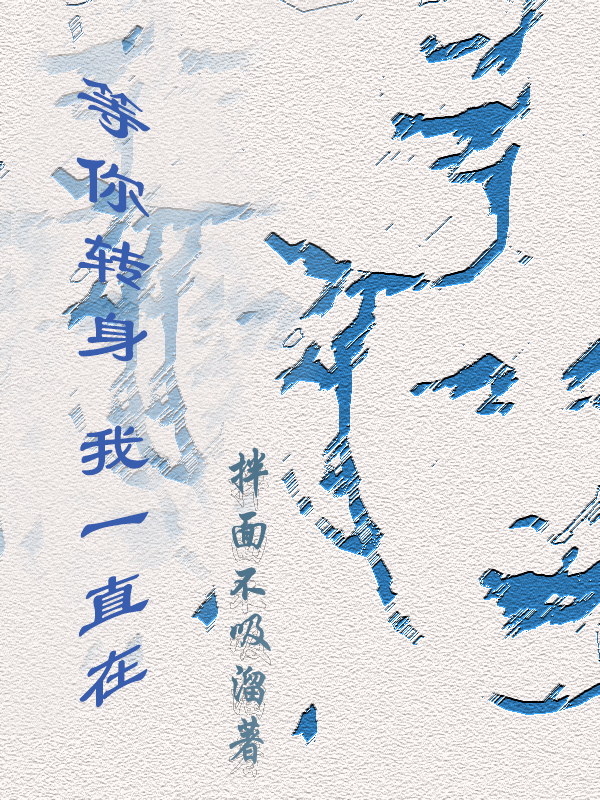 等你转身 我一直在
拌面不吸溜著